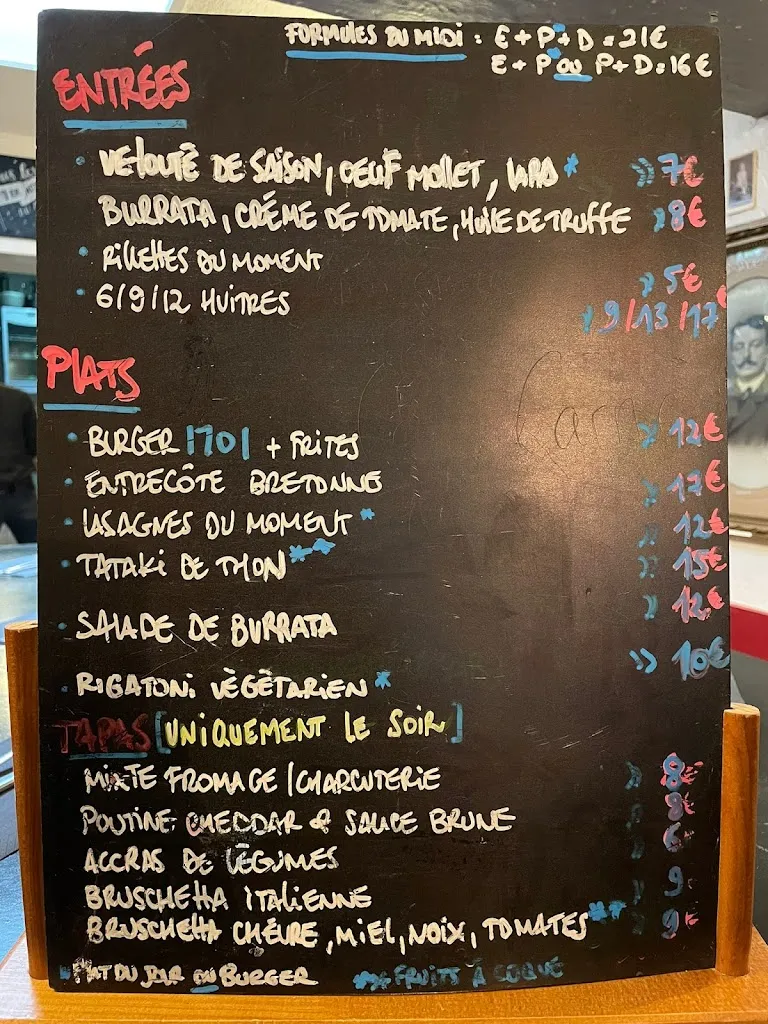 FORMULES DU MIDI : E + P + D = 21€
E + P OU P + D = 16€
ENTRÉES
• VELOUTÉ DE SAISON, OEUF MOLLET, LARD* » 7€
BURRATA, CRÉME DE TOMATE, HUILE DE TRUFFE » 8€
• RILLETTES DU MOMENT » 5€
• 6/9/12 HUITRES » 9/13/17€
PLATS
• BURGER 1701 + FRITES » 12€
• ENTRECÔTE BRETONNE » 17€
• LASAGNES DU MOMENT* » 12€
• TATAKI DE THON** » 15€
• SALADE DE BURRATA » 12€
• RIGATONI VÉGÉTARIEN* » 10€
TAPAS [UNIQUEMENT LE SOIR]
MIXTE FROMAGE / CHARCUTERIE » 8€
POUTINE CHEDDAR & SAUCE BRUNE » 8€
ACCRAS DE LÉGUMES » 6€
BRUSCHETTA ITALIENNE » 9
BRUSCHETTA CHÈVRE, MIEL, NOIX, TOMATES** » 9€
*PLAT DU JOUR OU BURGER ** FRUITS À COQUE